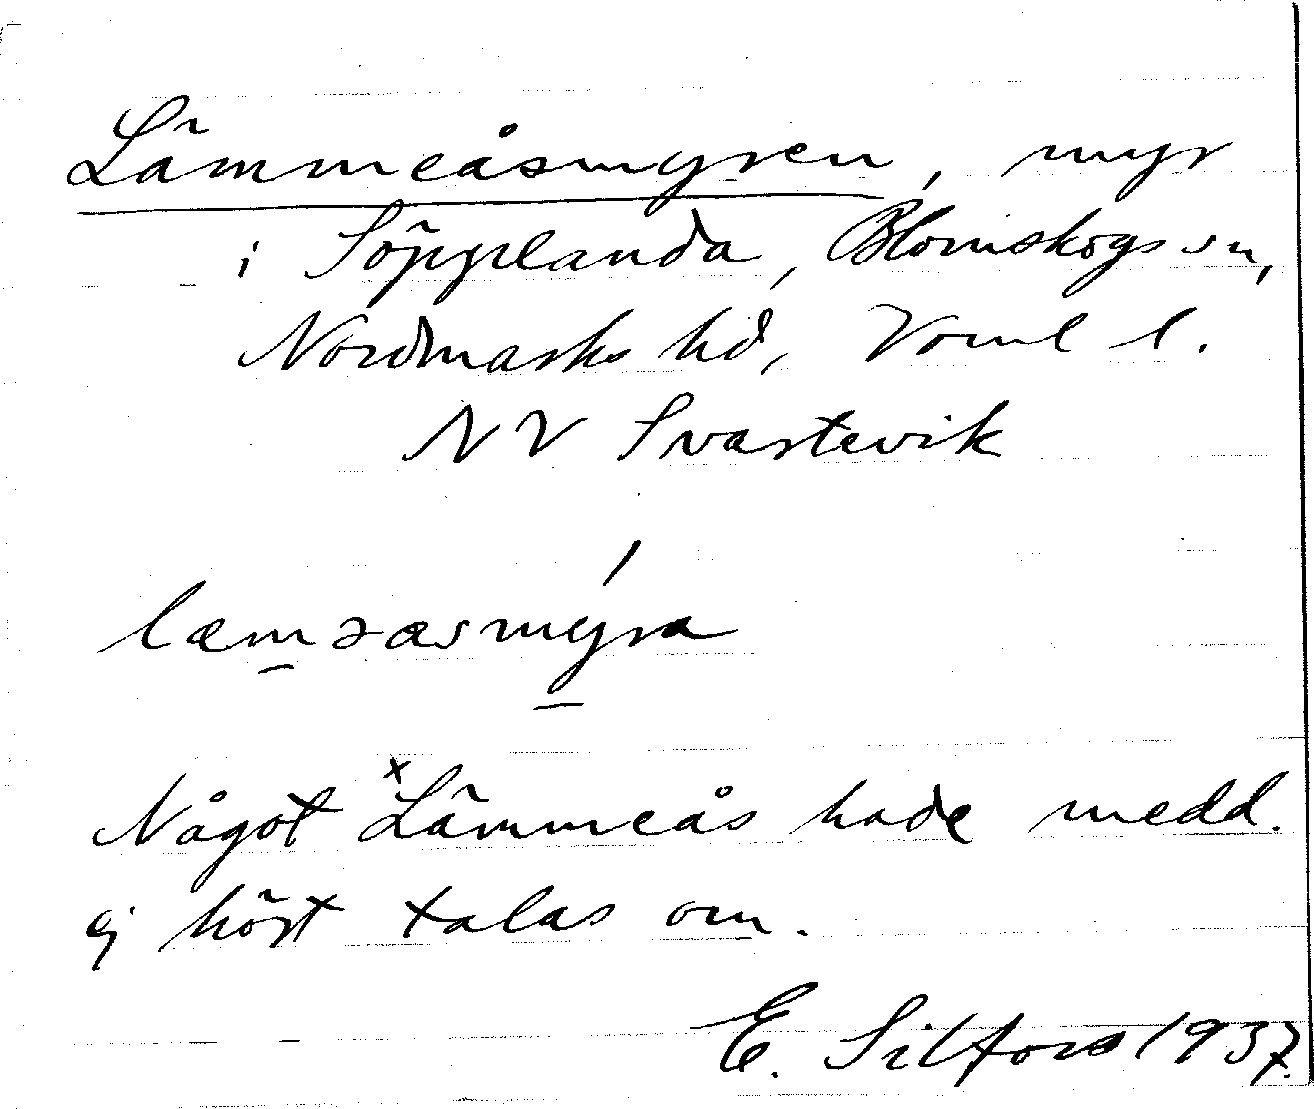 Lämmeåsmyren, myr
i Söpplanda, Blomskogs sn,
Nordmarks hd, Vrml l.
NV Svartevik
læməåsmýra
Något ˣLämmeås hade medd.
ej hört talas om.
E. Silfors 1937.